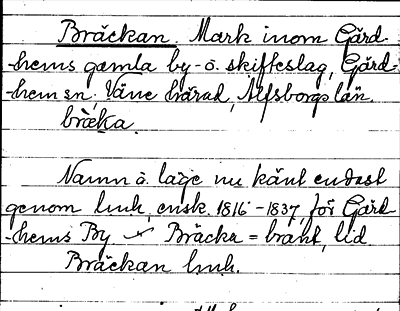 Bräckan. Mark inom Gärd
-hems gamla by- o. skifteslag, Gärd-
hem sn, Väne härad, Älfsborgs län.
bràka.
Namn o. läge nu känt endast
genom lmh, ensk. 1816-1837, för Gärd
-hems By Bräcka = brant, lid
Bräckan lmh.